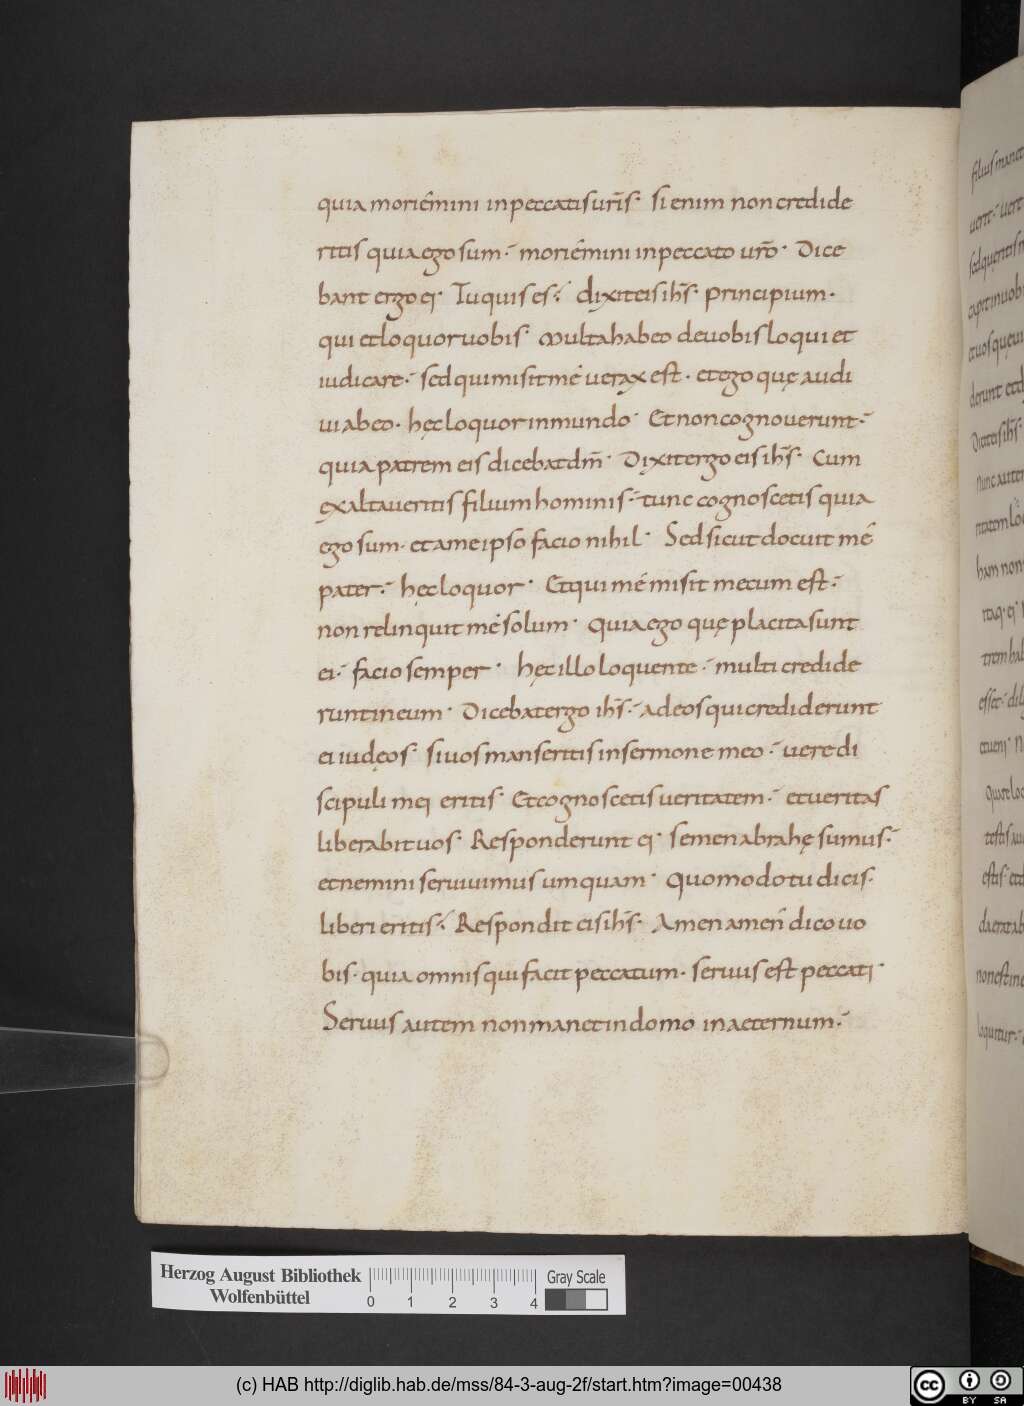 quia moriemini in peccatis ur̄is· Si enim non credide
ritis quia ego sum·̄ moriemini in peccato ur̄o· Dice
bant ergo ei· Tu quis es·̄ dixit eis ih̄s· principium·
qui et loquor uobis· Multa habeo de uobis loqui et
iudicare·̄ sed qui misit mé uerax est· et ego quę audi
ui ab eo· hęc loquor in mundo· Et non cognouerunt·̄
quia patrem eis dicebat dm̄· Dixit ergo eis ih̄s· Cum
exaltaueritis filium hominis·̄ tunc cognoscetis quia
ego sum· et a me ipso facio nihil· Sed sicut docuit mé
pater·̄ hęc loquor· Et qui mé misit mecum est·̄
non relinquit mé solum· quia ego quę placita sunt
ei·̄ facio semper· hęc illo loquente·̄ multi credide
runt in eum· Dicebat ergo ih̄s·̄ ad eos qui crediderunt
ei iudęos· Si uos manseritis in sermone meo·̄ uere di
scipuli mei eritis· Et cognoscetis ueritatem·̄ et ueritas
liberabit uos· Responderunt ei· Semen abrahę sumus·̄
et nemini seruiuimus umquam· Quomodo tu dicis·
liberi eritis·̄ Respondit eis ih̄s· Amen amen dico uo
bis· quia omnis qui facit peccatum· seruus est peccati·
Seruus autem non manet in domo in aeternum·̄
Herzog August Bibliothek
Wolfenbüttel
0 1 2 3 4
Gray Scale
(c) HAB http://diglib.hab.de/mss/84-3-aug-2f/start.htm?image=00438
cc BY SA